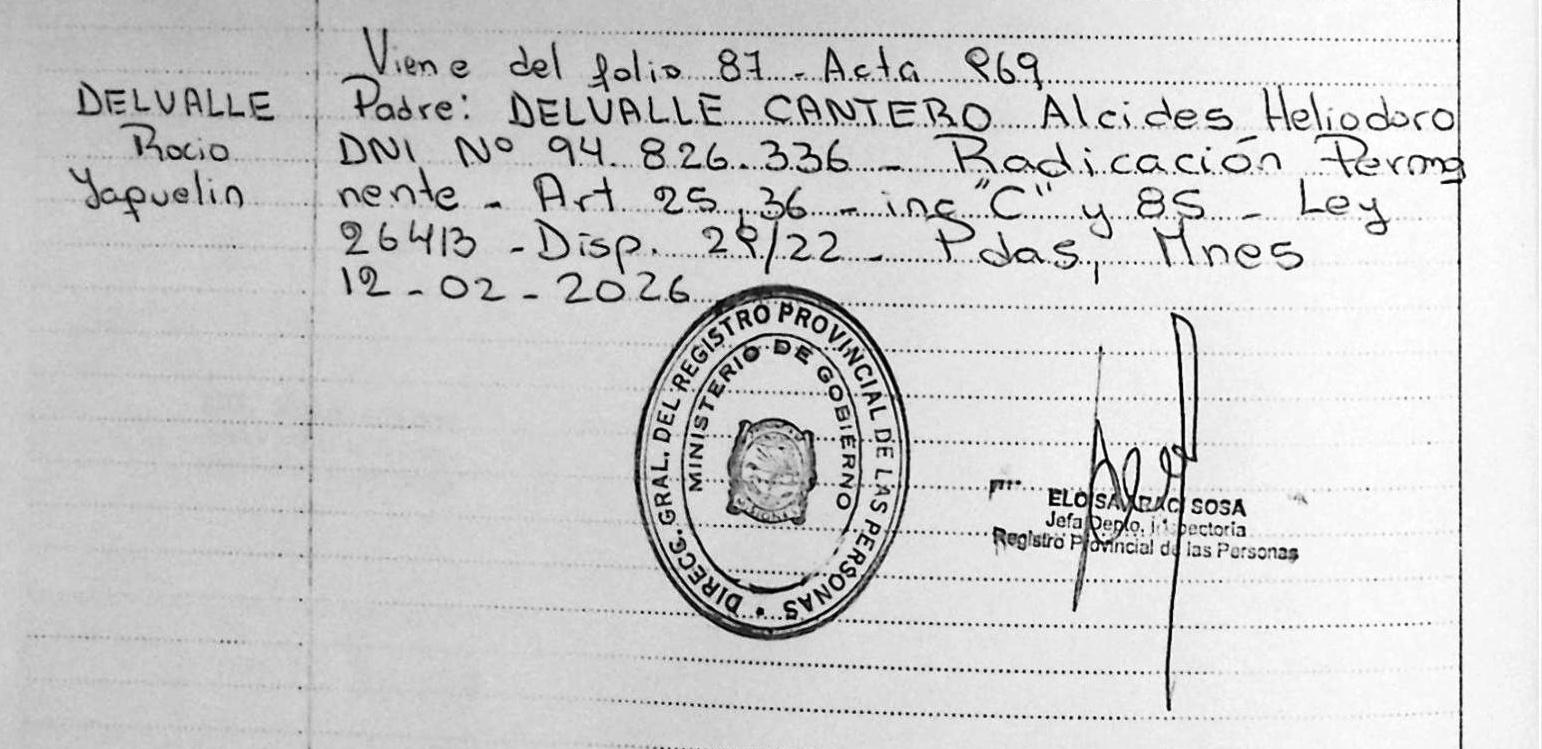 Viene del folio 87 - Acta 869
DELVALLE
Rocio
Yaquelin
Padre: DELVALLE CANTERO Alcides Heliodoro
DNI Nº 94.826.336 - Radicación Perma
nente - Art 25, 36 - inc "C" y 85 - Ley
26413 - Disp. 28/22 - Pdas, Mnes
12-02-2026
DIRECC. GRAL. DEL REGISTRO PROVINCIAL DE LAS PERSONAS
MINISTERIO DE GOBIERNO
MISIONES
ELOISA SOSA
Jefa Depto. Inspectoria
Registro Provincial de las Personas